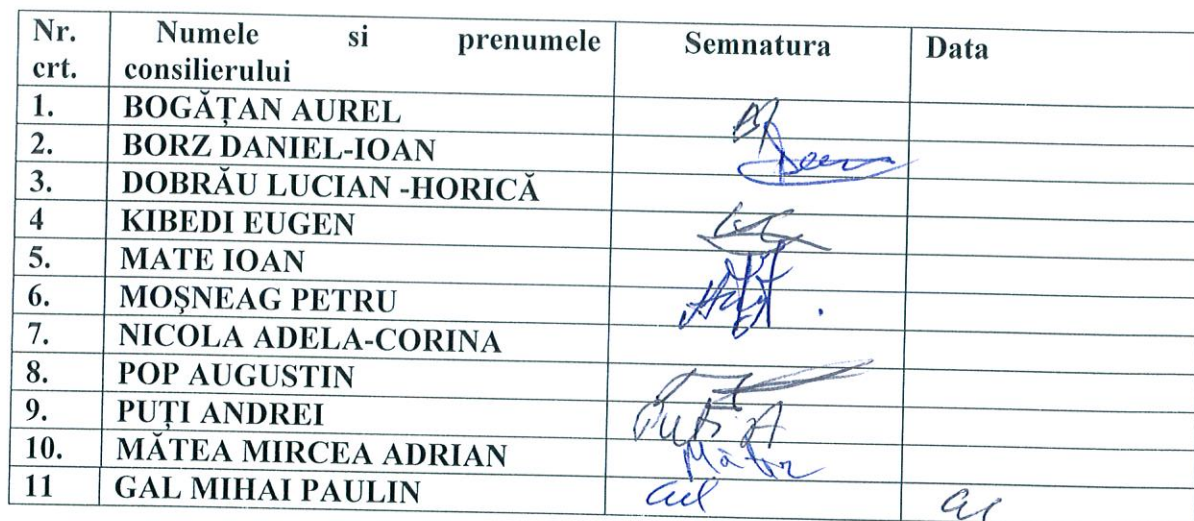 Nr. crt. Numele si prenumele consilierului Semnatura Data
1. BOGĂȚAN AUREL
2. BORZ DANIEL-IOAN
3. DOBRĂU LUCIAN -HORICĂ
4 KIBEDI EUGEN
5. MATE IOAN
6. MOȘNEAG PETRU
7. NICOLA ADELA-CORINA
8. POP AUGUSTIN
9. PUȚI ANDREI Puti A
10. MĂTEA MIRCEA ADRIAN
11 GAL MIHAI PAULIN